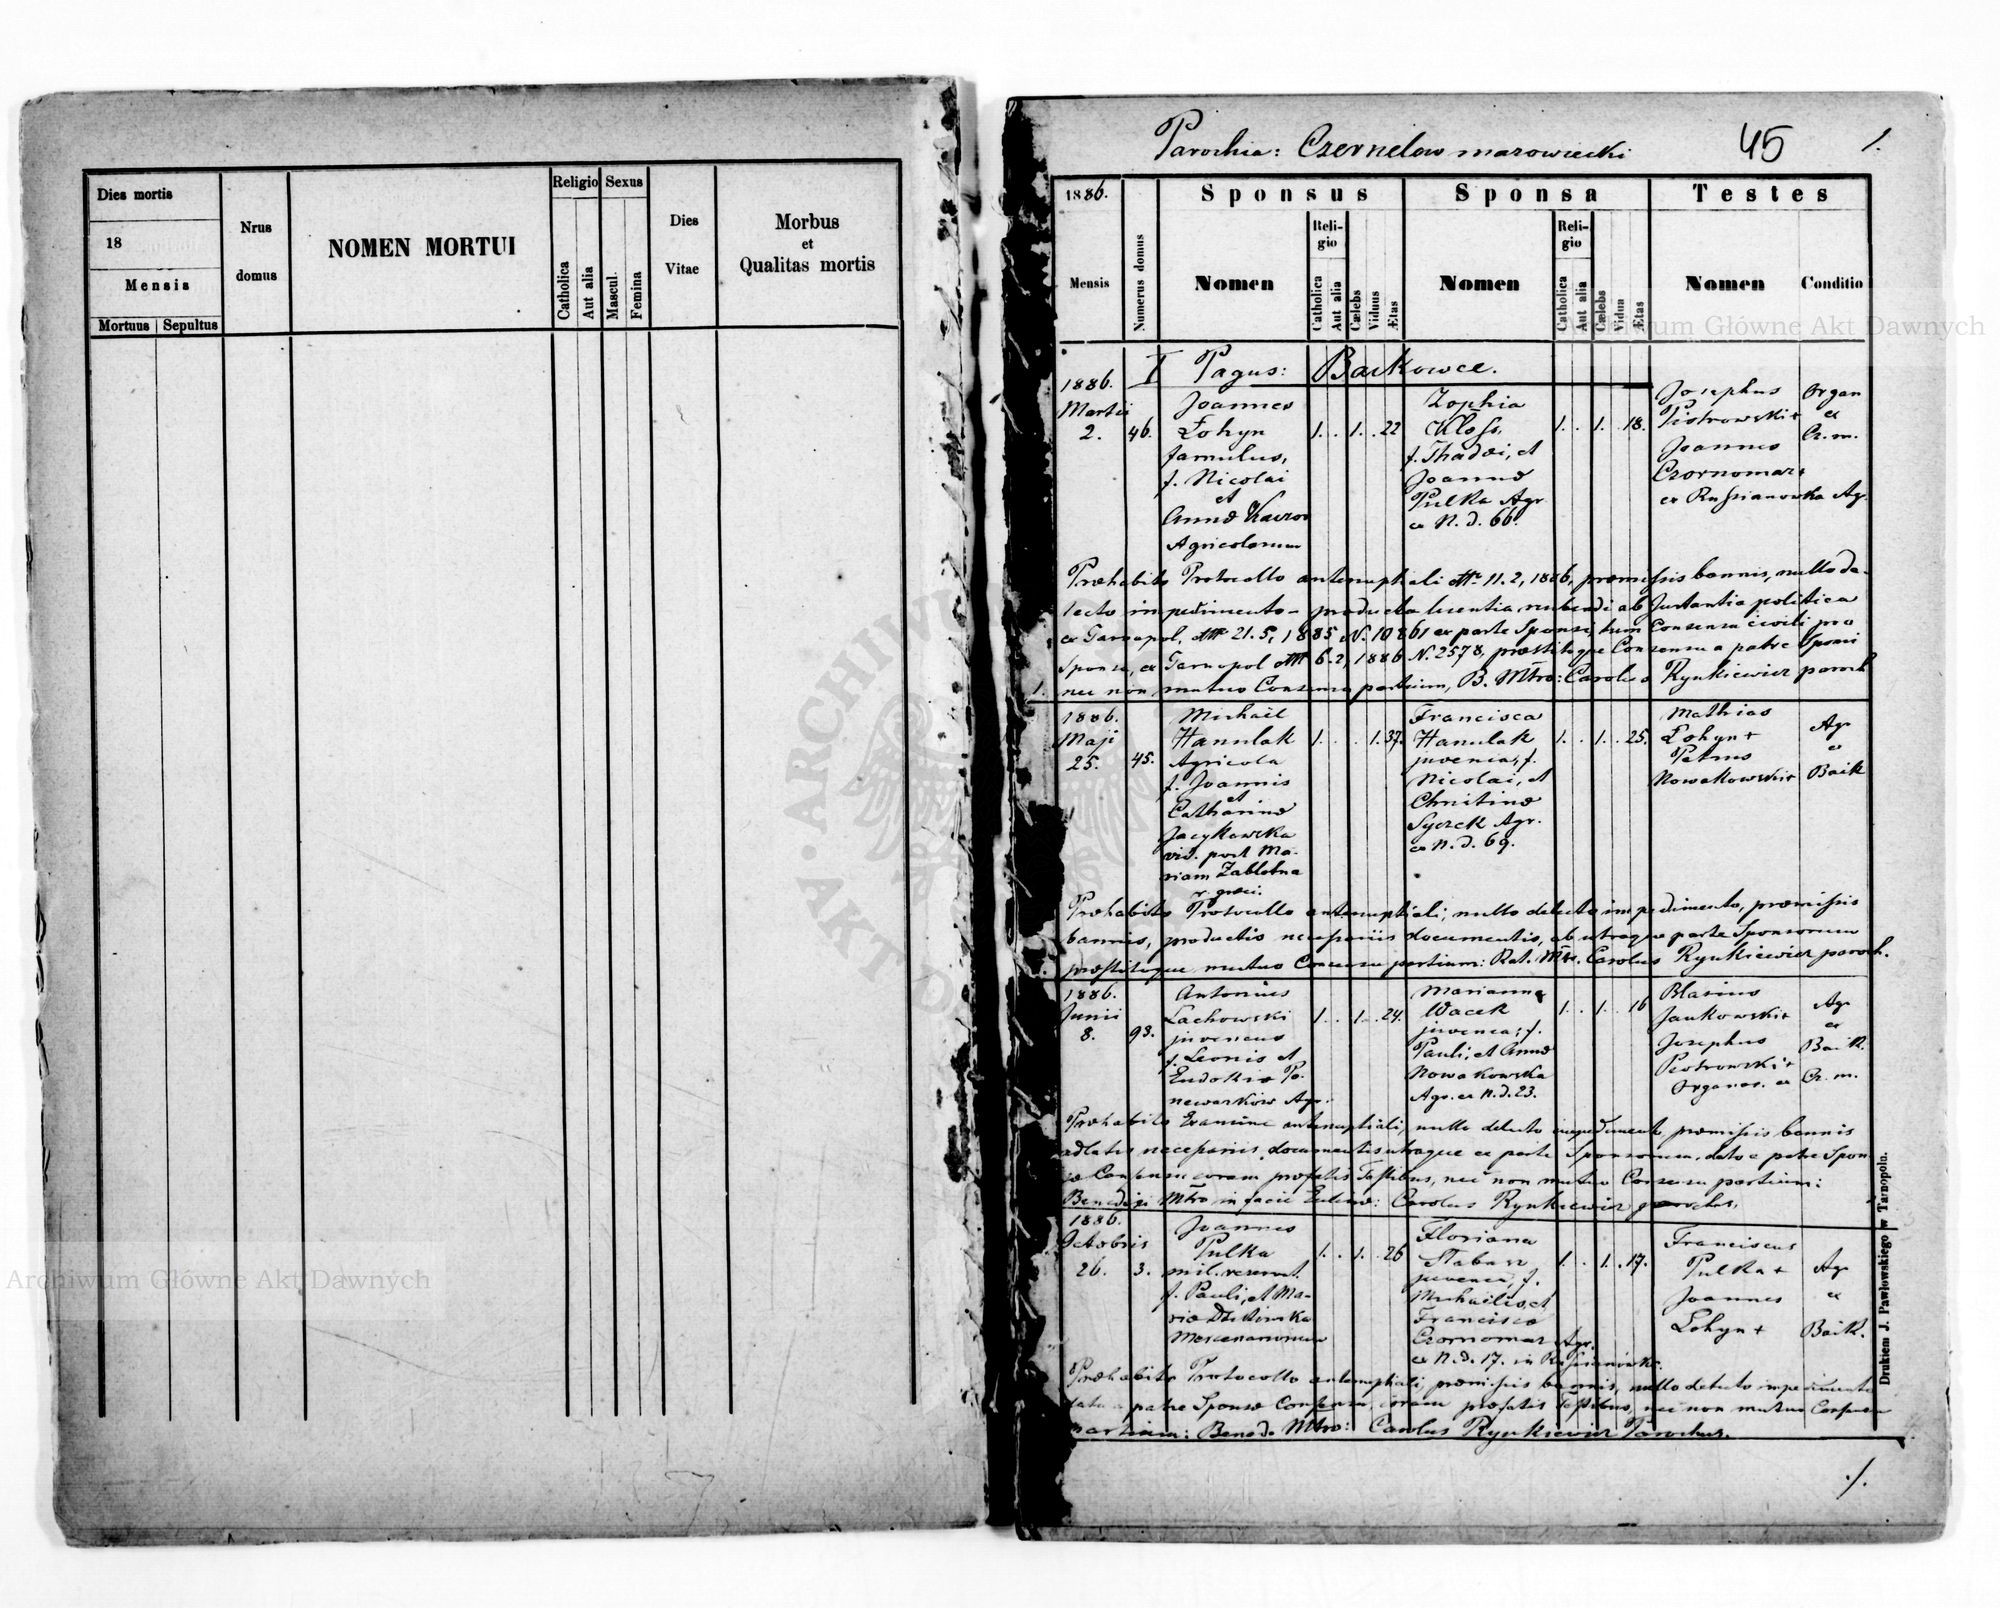 Dies mortis
18
Mensis
Mortuus
Sepultus
Nrus
domus
NOMEN MORTUI
Religio
Catholica
Aut alia
Sexus
Mascul.
Femina
Dies
Vitae
Morbus
et
Qualitas mortis
Parochia: Czernelow mazowiecki
45
1.
1886.
Mensis
Numerus domus
Sponsus
Nomen
Reli-
gio
Catholica
Aut alia
Cælebs
Viduus
Ætas
Sponsa
Nomen
Reli-
gio
Catholica
Aut alia
Cælebs
Vidua
Ætas
Testes
Nomen
Conditio
I Pagus: Baikowce.
1886.
Martii
2.
46.
Joannes
Łohyn
famulus,
f. Nicolai
et
Annæ
Agricolarum
1. . 1. . 22
Zophia
f. Thadæi, et
Joannæ
Pulka Agr
ex N. d. 66.
1. . 1. . 18.
Josephus
Piotrowski +
Joannes
Czornomaz +
ex Russianowka Ag.
Organ
ex
Cz. m.
Præhabito Protocollo antenuptiali dtto 11.2, 1886, præmissis bannis, nullo de-
tecto impedimento - producta licentia nubendi ab Instantia politica
ex Tarnopol, dtto 21.5, 1885 N. 10861 ex parte Sponsi, tum Consensu civili pro
Sponsa, ex Tarnopol dtto 6.2, 1886 N. 2578, præstitoque Consensu a patre Sponsi
1. nec non mutuo Consensu partium, B. Mtro: Carolus Rynkiewicz paroch
1886.
Maji
25.
45.
Michaël
Hanulak
Agricola
f. Joannis
et
Catharinæ
Jacykowska
vid. post Ma-
riam Zabłotna
r. græci.
1. . . 1. 37.
Francisca
Hanulak
juvenca, f.
Nicolai, et
Christinæ
Syczek Agr.
ex N. d. 69.
1. . 1. . 25.
Mathias
Łohyn +
Petrus
Nowakowski +
Agr
ex
Baik
Præhabito Protocollo antenuptiali, nullo detecto impedimento, præmissis
bannis, productis necessariis documentis, ab utraque parte Sponsorum
præstitoque mutuo Consensu partium: Rat. Mtr. Carolus Rynkiewicz paroch.
1886.
Junii
8.
93.
Antonius
Lachowski
juvencus
f. Leonis et
Eudokiæ Po-
newazków Agr.
1. . 1. . 24.
Marianna
Wacek
juvenca, f.
Pauli, et Annæ
Nowakowska
Agr. ex N. d. 23.
1. . 1. . 16
Blasius
Jankowski +
Josephus
Piotrowski +
Organos. ex
Agr
ex
Baik.
Cz. m.
Præhabito Examine antenuptiali, nullo detecto impedimento, præmissis bannis
adlatis necessariis documentis utraque ex parte Sponsorum, dato a patre Spon
sæ Consensu coram præfatis Testibus, nec non mutuo Consensu partium:
Mtro in facie Ecclesiæ: Carolus Rynkiewicz parochus.
1886.
Octobris
26.
3.
Joannes
Pulka
mil. reservat.
f. Pauli, et Ma-
riæ
Mercenariorum
1. . 1. . 26
Floriana
Słabasz
juvenca, f.
Michaëlis, et
Franciscæ
Czornomaz Agr.
ex N. d. 17. in Russianówka.
1. . 1. . 17.
Franciscus
Pulka +
Joannes
Łohyn +
Agr
ex
Baik.
Præhabito Protocollo antenuptiali, præmissis bannis, nullo detecto impedimento
dato a patre Sponsæ Consensu coram præfatis Testibus, nec non mutuo Consensu
partium: Bened. Mtro: Carolus Rynkiewicz Parochus.
./.
Drukiem J. Pawłowskiego w Tarnopolu.
Archiwum Główne Akt Dawnych
Archiwum Główne Akt Dawnych